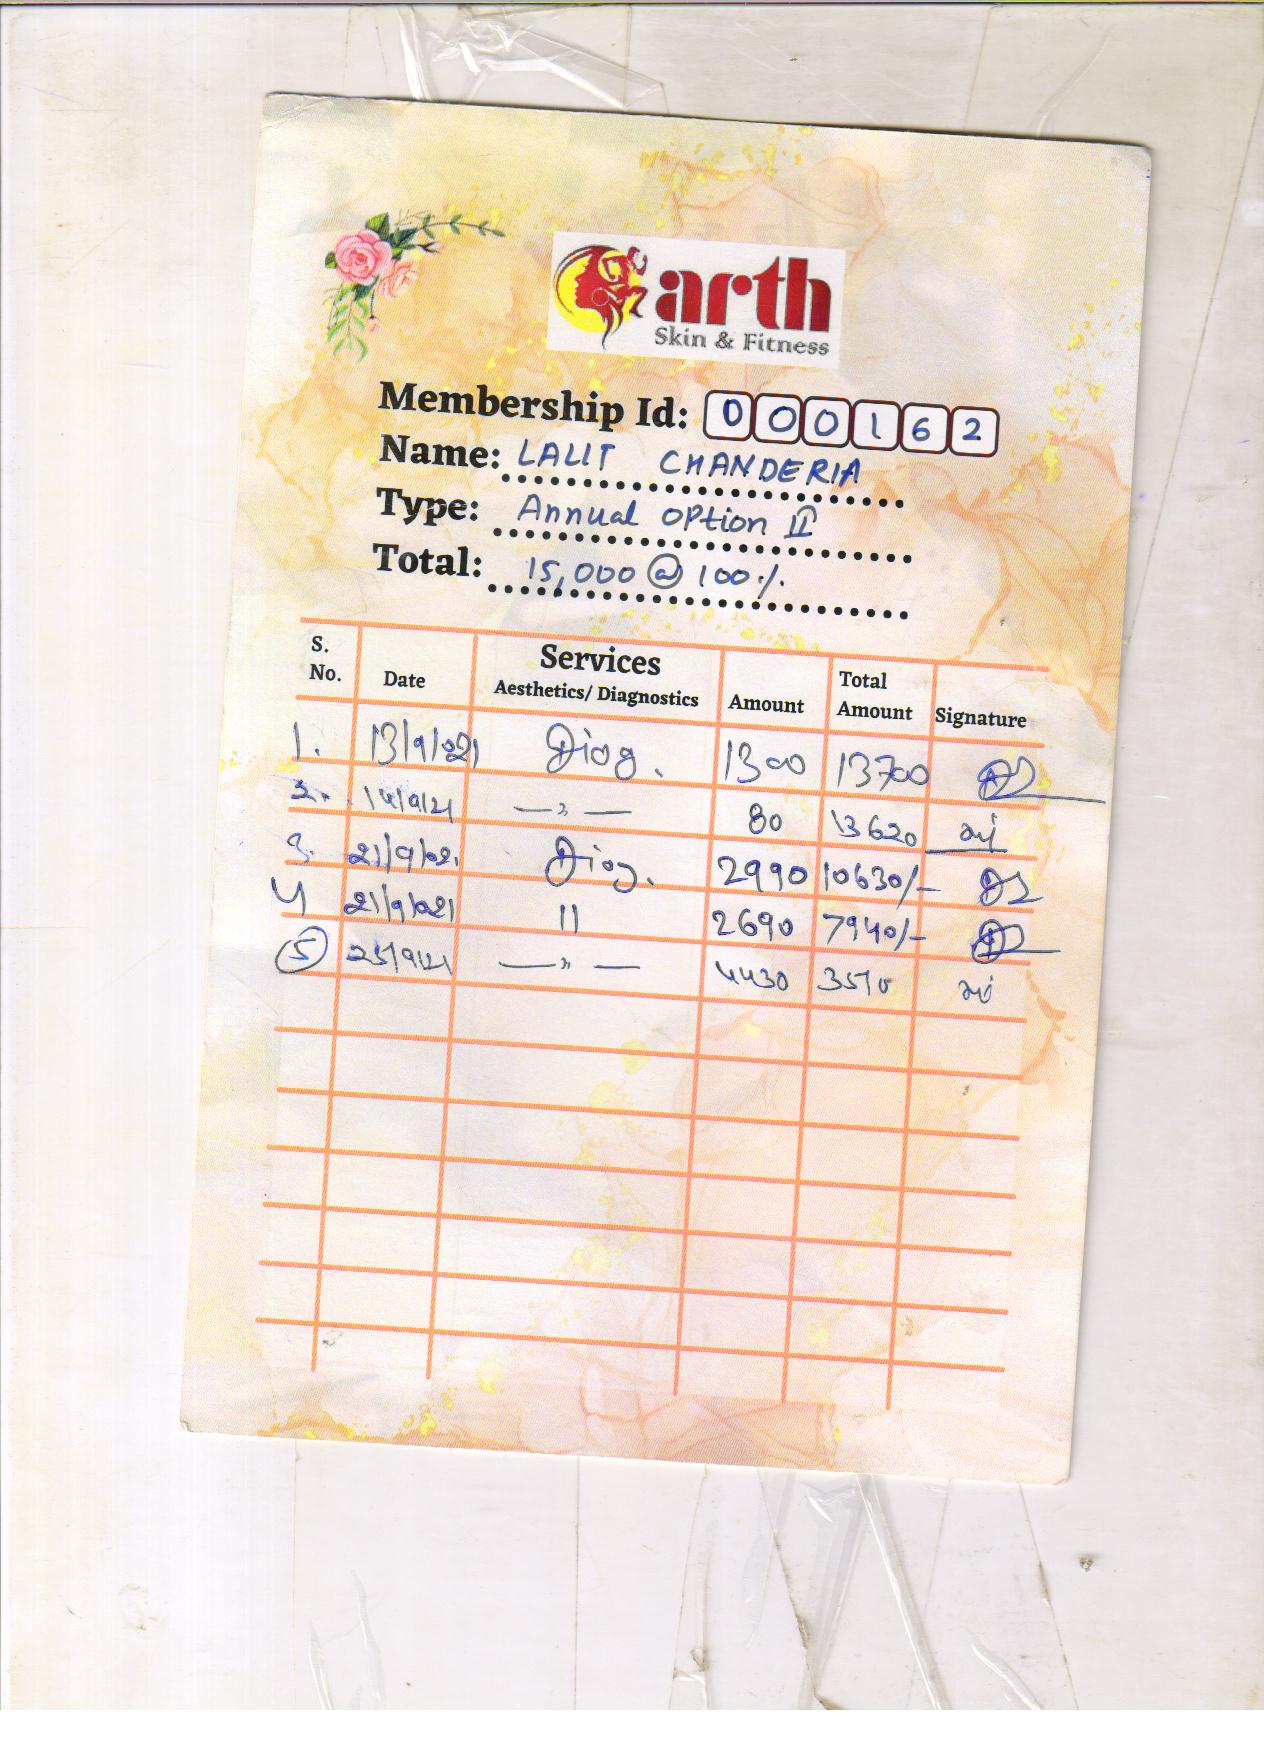 arth
Skin & Fitness
Membership Id: 000162
Name: LALIT CHANDERIA
Type: Annual Option II
Total: 15,000 @ 100%
S. No. Date Services Aesthetics/ Diagnostics Amount Total Amount Signature
1. 13/9/021 Diog. 1300 13700
2. 14/9/21 —〃— 80 13620
3. 21/9/021 Diog. 2990 10630/-
4 21/9/021 11 2690 7940/-
5 25/9/21 —〃— 4430 3510